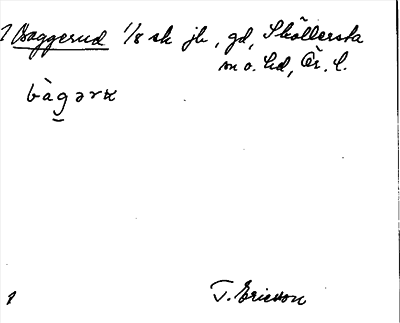 Baggerud 1/8 sk jb, gd, Sköllersta
sn o. hd, Ör. l.
bàgərʉ
T. Ericsson